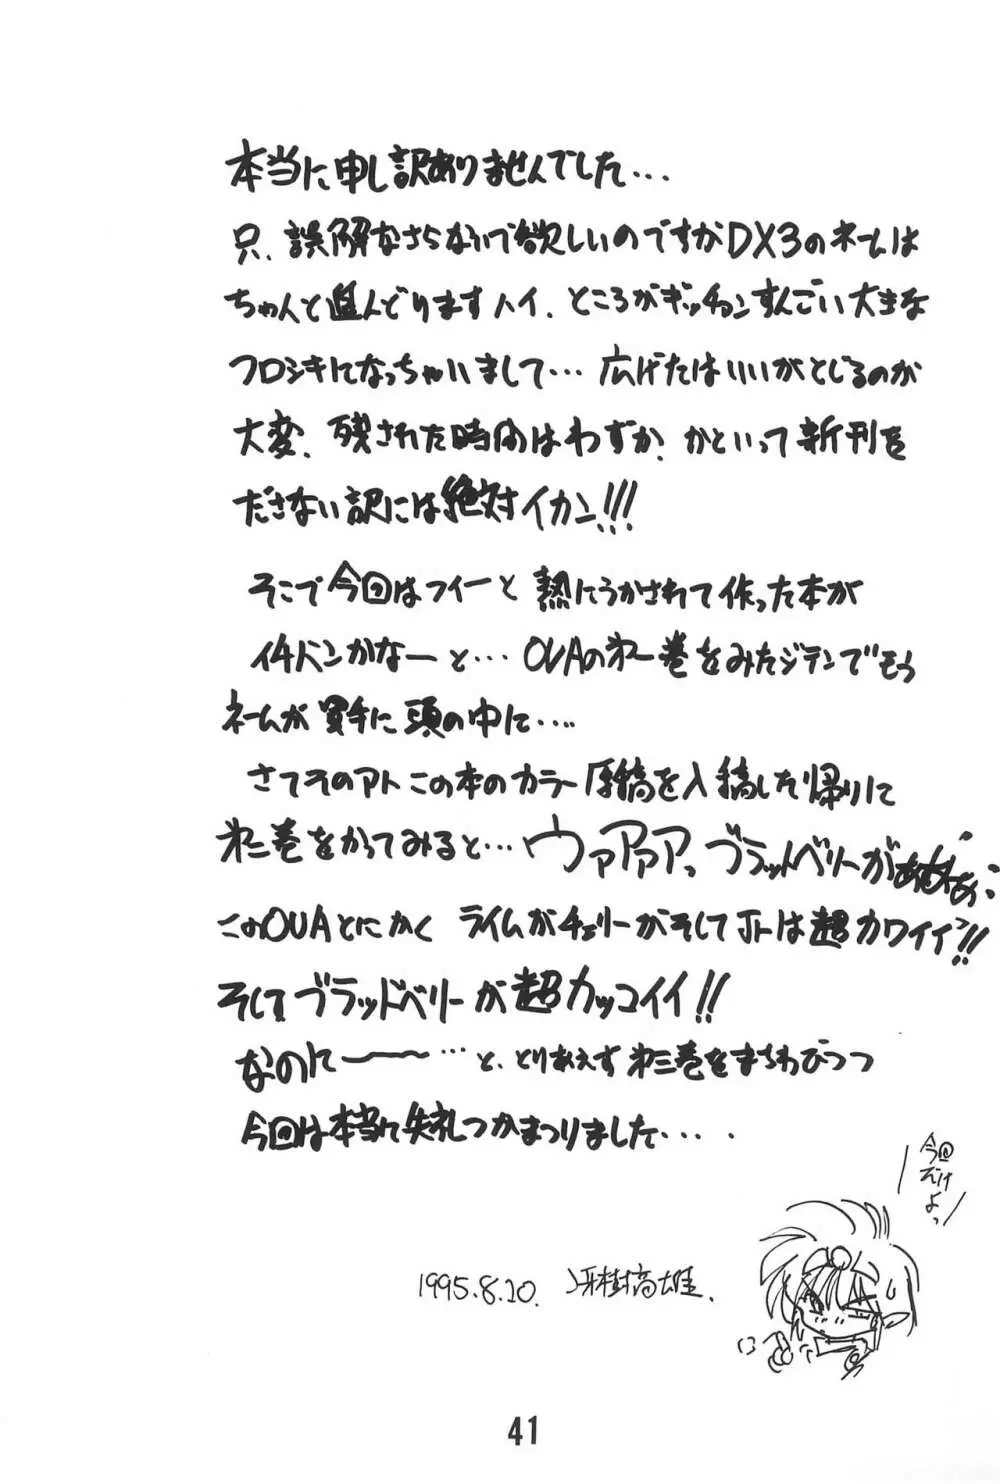 本当に申し訳ありませんでした…
只、誤解なさらないで欲しいのですがDX3のネームは
ちゃんと進んどりますハイ、ところがギッチョンすんごい大きな
フロシキになっちゃいまして… 広げたはいいがとじるのが
大変、残された時間はわずか、かといって新刊を
ださない訳には絶対イカン!!!
そこで今回はフイーと 熱にうかされて作った本が
イチバンかなーと… OVAの第一巻をみたジテンでもう
ネームが 勝手に 頭の中に…
さてそのアト この本のカラー原稿を入稿した帰りに
第二巻をかってみると… ウァアァアっ ブラッドベリーがああああ
このOVAとにかく ライムがチェリーがそしてJrは超カワイイ!!
そしてブラッドベリーが超カッコイイ!!
なのに〜〜 …と、とりあえず第三巻をまちわびつつ
今回は本当に失礼つかまつりました…
今回
だけ
よっ
1995.8.20. 冴樹高雄.
41